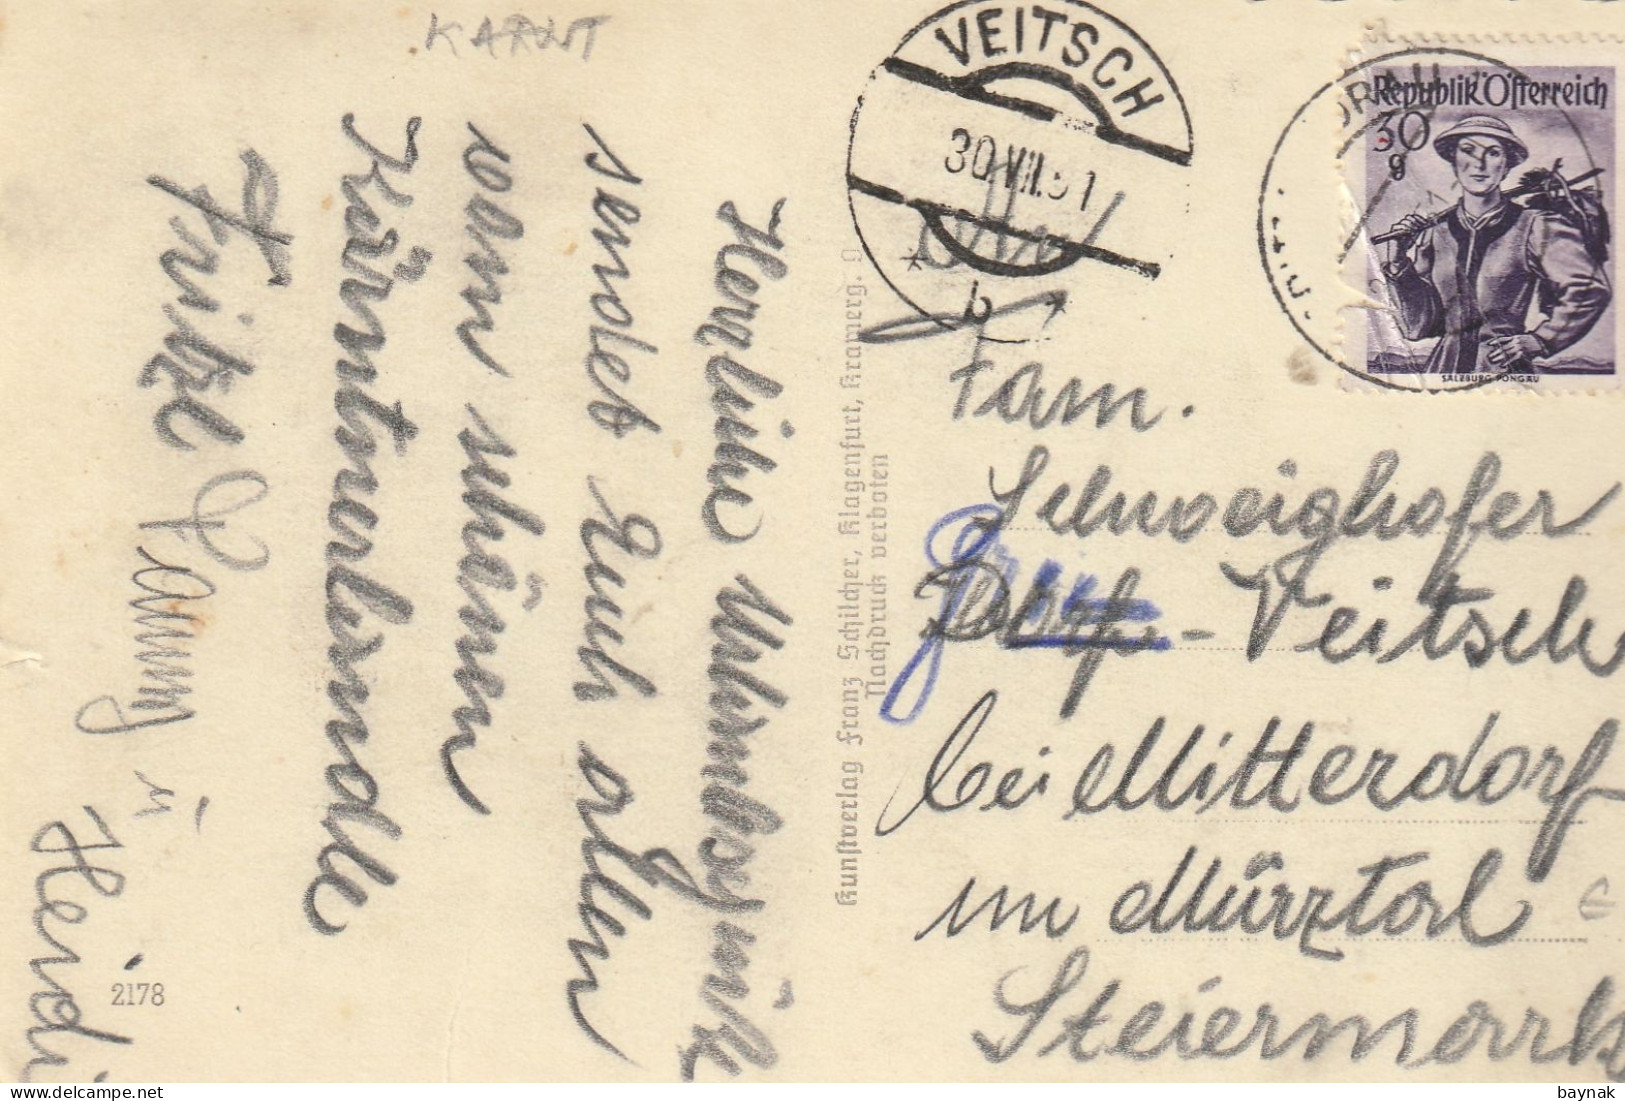 KARNT
VEITSCH
30.VII.51
b
Republik Österreich
30
g
SALZBURG PONGAU
DRAU
Herzliche Urlaubsgrüße
sendet Euch allen
vom schönen
Kärntnerlandle
Fritzl
ü
Heidi
2178
Kunstverlag Franz Schilcher, Klagenfurt, Kramerg. 9
Nachdruck verboten
Fam.
Schweighofer
Veitsch
bei Mitterdorf
im Mürztal
Steiermark
baynak